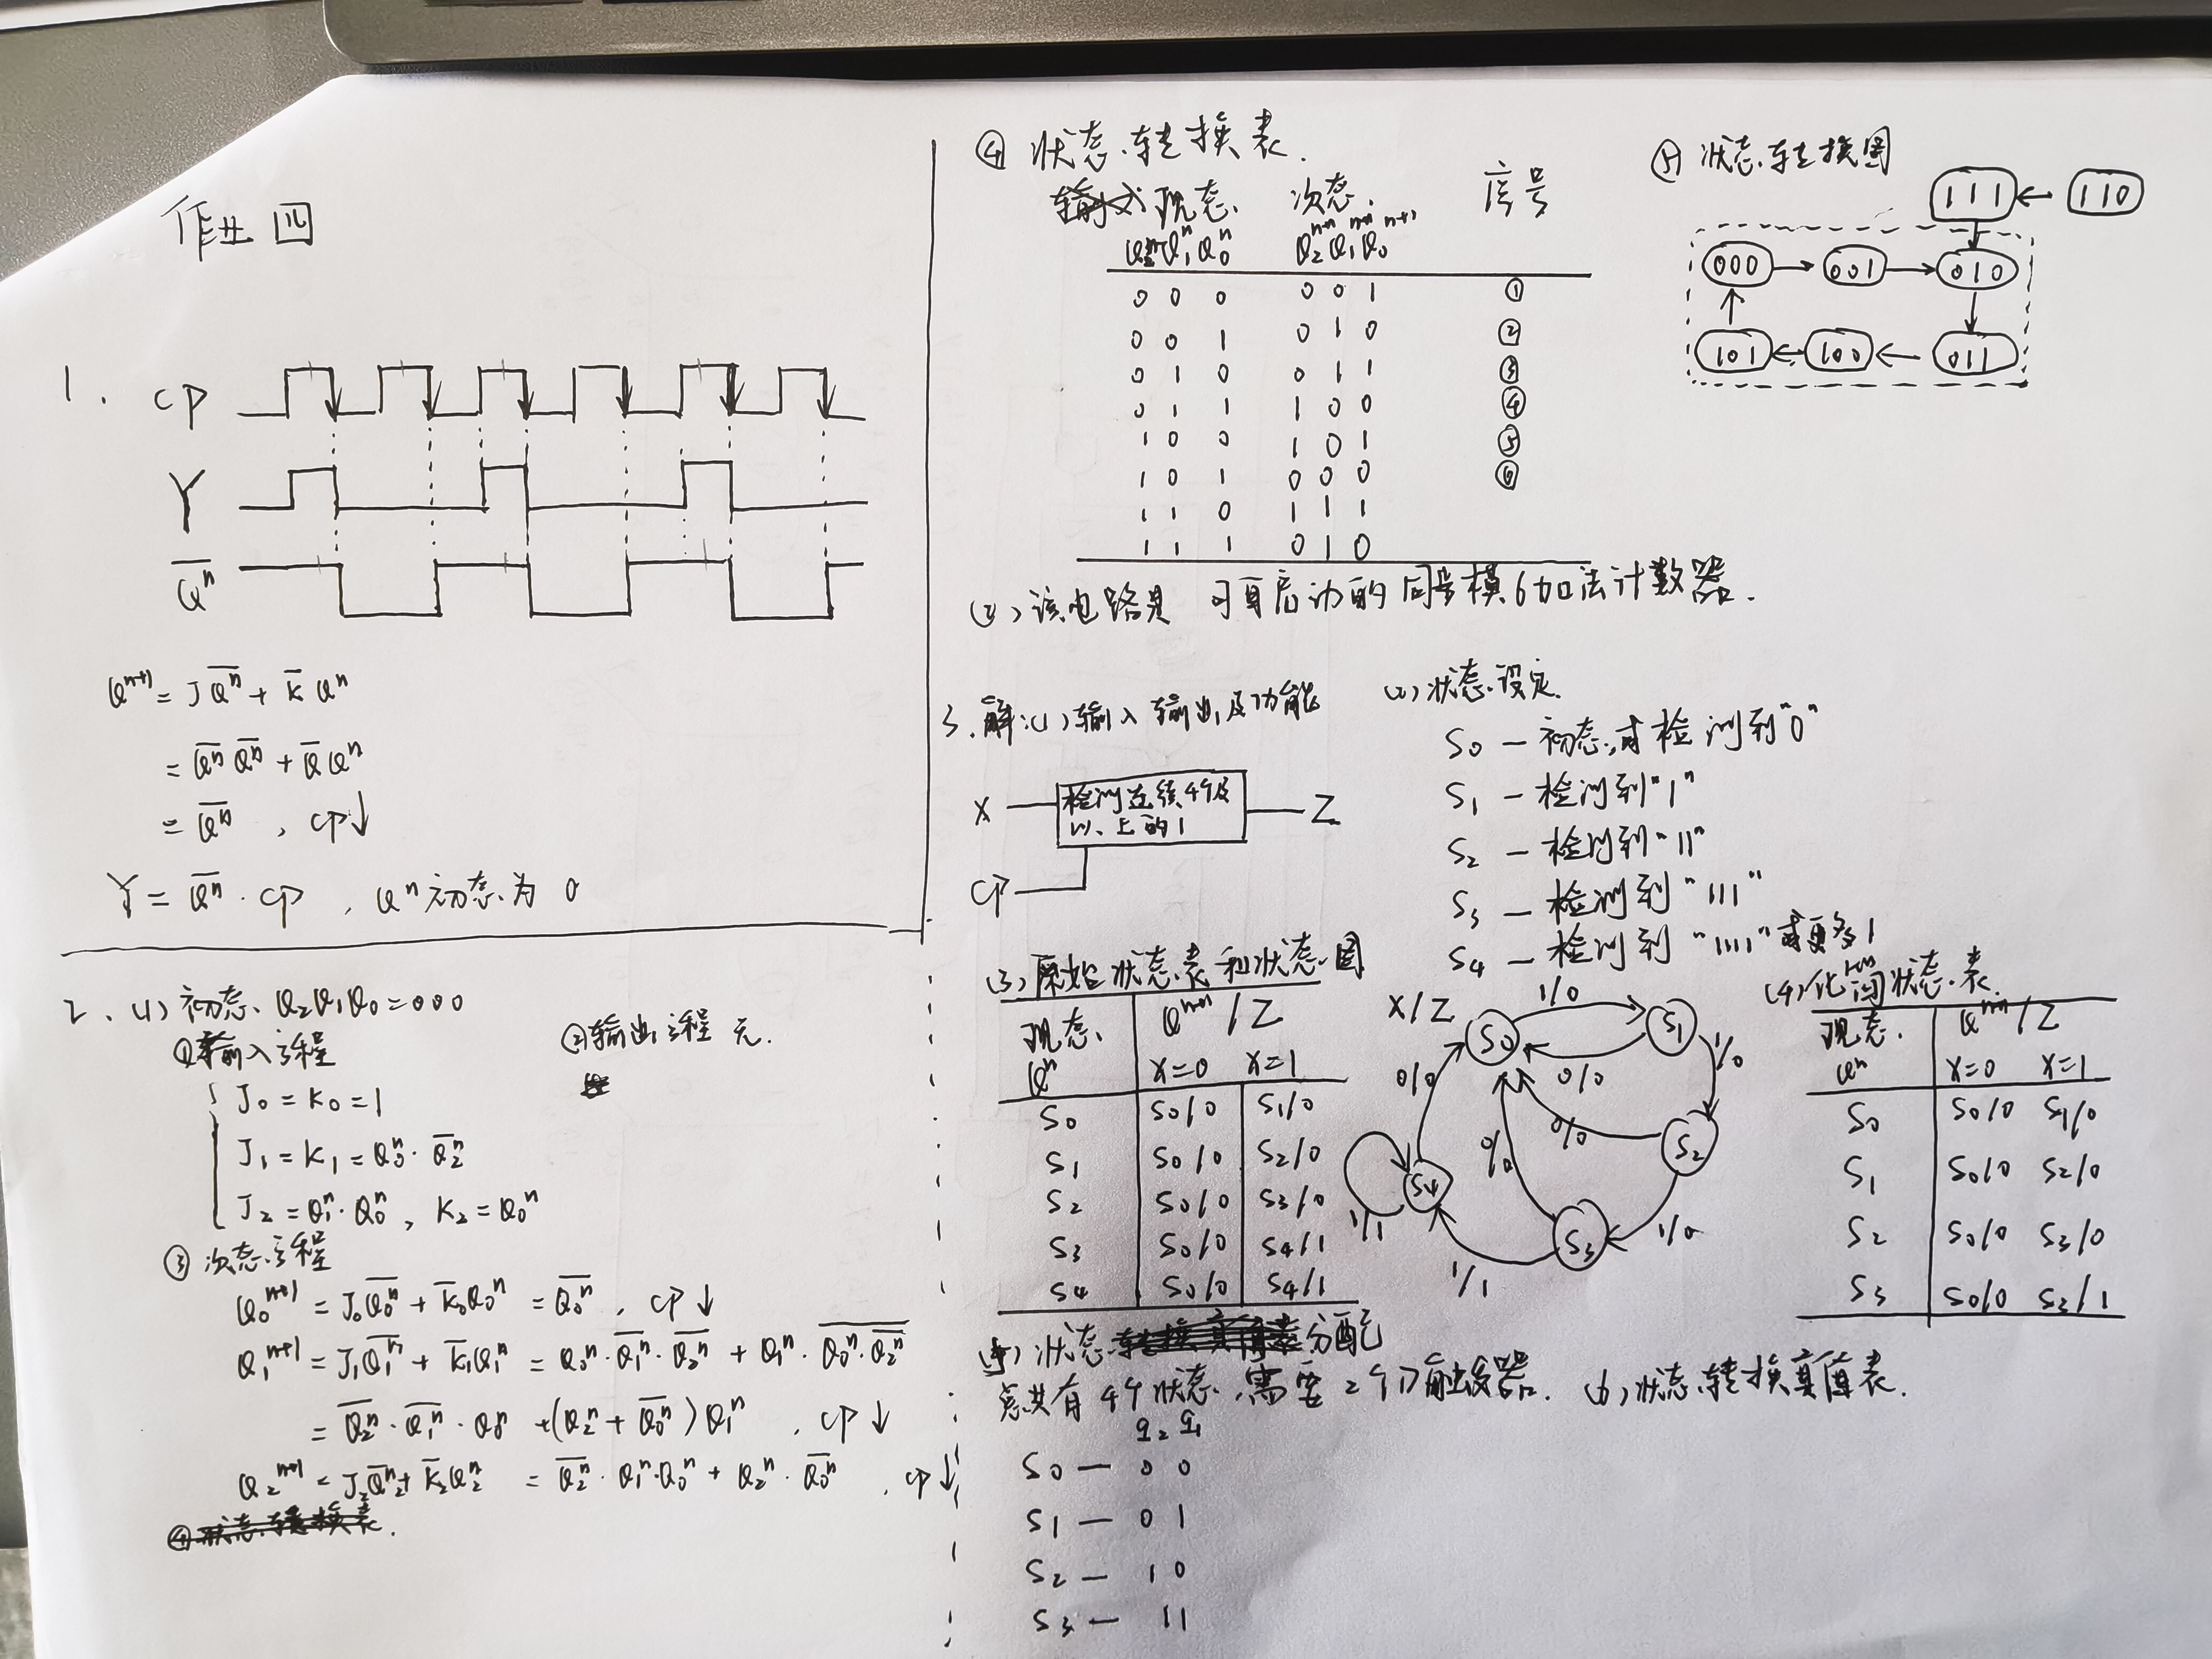 作业四
1.
CP
Y
Q̅ⁿ
Qⁿ⁺¹ = J Q̅ⁿ + K̅ Qⁿ
= Q̅ⁿ Q̅ⁿ + Q̅ Qⁿ
= Q̅ⁿ , CP↓
Y = Q̅ⁿ · CP , Qⁿ初态为 0
2. (1) 初态 Q₂Q₁Q₀ = 000
①输入方程
②输出方程 无.
J₀ = K₀ = 1
J₁ = K₁ = Q₀ⁿ · Q̅₂ⁿ
J₂ = Q₁ⁿ · Q₀ⁿ, K₂ = Q₀ⁿ
③ 次态方程
Q₀ⁿ⁺¹ = J₀Q̅₀ⁿ + K̅₀Q₀ⁿ = Q̅₀ⁿ , CP↓
Q₁ⁿ⁺¹ = J₁Q̅₁ⁿ + K̅₁Q₁ⁿ = Q₀ⁿ · Q̅₁ⁿ · Q̅₂ⁿ + Q₁ⁿ · \overline{Q₀ⁿ · Q̅₂ⁿ}
= Q̅₂ⁿ · Q̅₁ⁿ · Q₀ⁿ + (Q₂ⁿ + Q̅₀ⁿ) Q₁ⁿ , CP↓
Q₂ⁿ⁺¹ = J₂Q̅₂ⁿ + K̅₂Q₂ⁿ = Q̅₂ⁿ · Q₁ⁿ · Q₀ⁿ + Q₂ⁿ · Q̅₀ⁿ , CP↓
④状态转换表.
④ 状态转换表.
输入 现态 次态. 序号
Q₂ⁿ Q₁ⁿ Q₀ⁿ Q₂ⁿ⁺¹ Q₁ⁿ⁺¹ Q₀ⁿ⁺¹
0 0 0 0 0 1 ①
0 0 1 0 1 0 ②
0 1 0 0 1 1 ③
0 1 1 1 0 0 ④
1 0 0 1 0 1 ⑤
1 0 1 0 0 0 ⑥
1 1 0 1 1 1
1 1 1 0 1 0
⑤ 状态转换图
111 ← 110
000 → 001 → 010
101 ← 100 ← 011
(2) 该电路是 可自启动的同步模6加法计数器.
3. 解:(1) 输入输出及功能
X
检测连续4个及
以上的1
Z
CP
(2) 状态设定.
S₀ — 初态,或检测到"0"
S₁ — 检测到"1"
S₂ — 检测到"11"
S₃ — 检测到"111"
S₄ — 检测到"1111"或更多1
(3) 原始状态表和状态图
现态 Qⁿ⁺¹/Z
Qⁿ X=0 X=1
S₀ S₀/0 S₁/0
S₁ S₀/0 S₂/0
S₂ S₀/0 S₃/0
S₃ S₀/0 S₄/1
S₄ S₀/0 S₄/1
X/Z
S₀
1/0
S₁
0/0
1/0
0/0
0/0
0/0
S₂
S₄
1/1
S₃
1/0
1/1
(4) 化简状态表.
现态. Qⁿ⁺¹/Z
Qⁿ X=0 X=1
S₀ S₀/0 S₁/0
S₁ S₀/0 S₂/0
S₂ S₀/0 S₃/0
S₃ S₀/0 S₃/1
(5) 状态转换真值表分配
总共有4个状态,需要2个D触发器.
q₂ q₁
S₀ — 0 0
S₁ — 0 1
S₂ — 1 0
S₃ — 1 1
(6) 状态转换真值表.